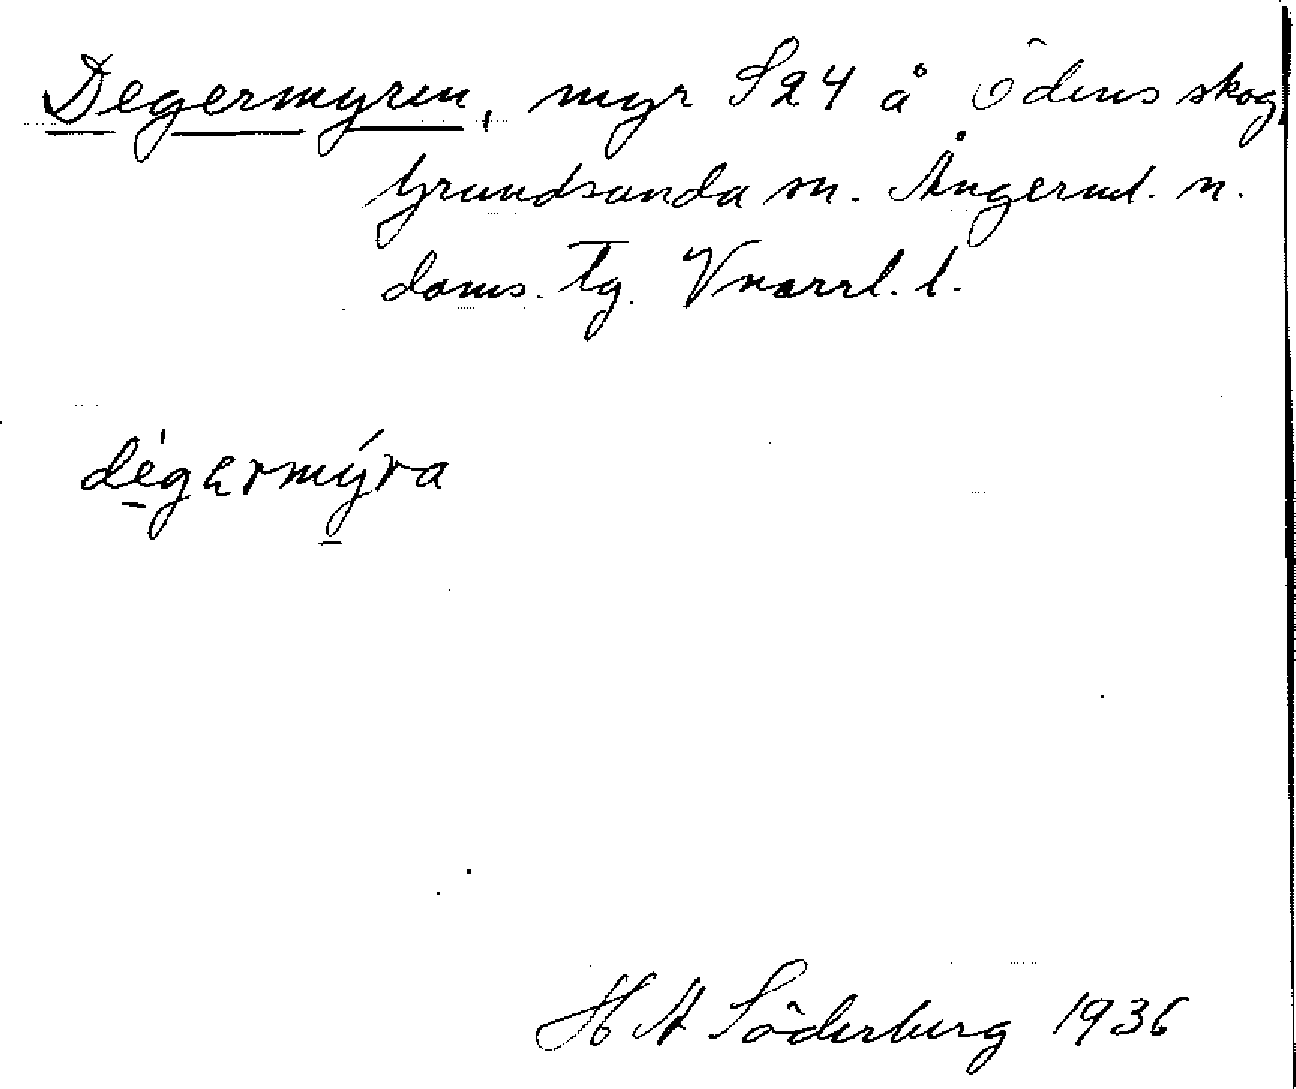 Degermyren, myr S24 å Ödens skog
Grundsunda sn. Ångerml. n.
doms. Tg. Vnorrl. l.
dégərmýra
H A Söderberg 1936